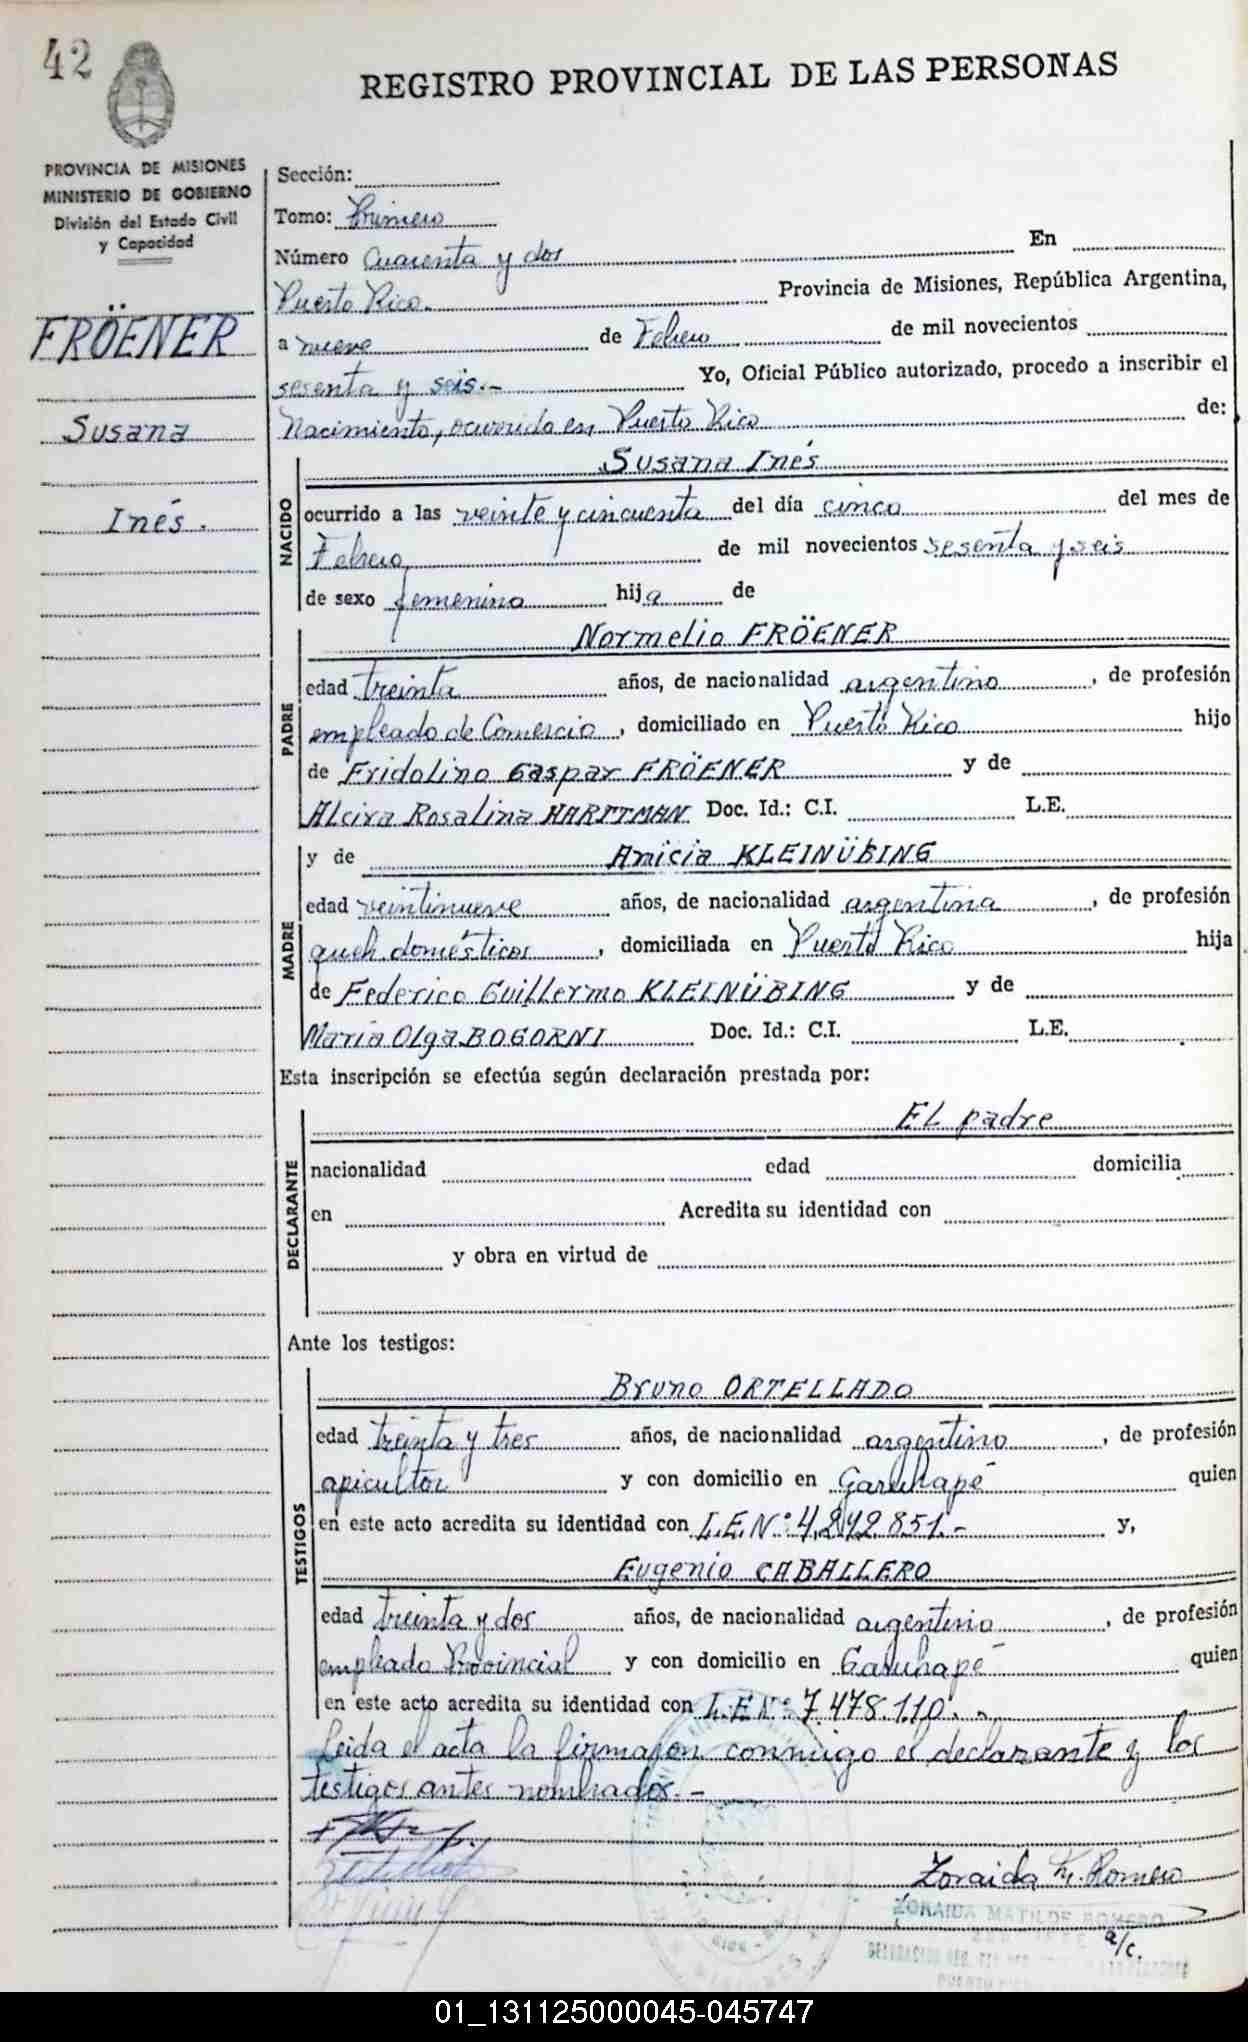 42
REGISTRO PROVINCIAL DE LAS PERSONAS
PROVINCIA DE MISIONES
MINISTERIO DE GOBIERNO
División del Estado Civil
y Capacidad
FRÖENER
Susana
Inés.
Sección:
Tomo: Primero
Número Cuarenta y dos En
Puerto Rico. Provincia de Misiones, República Argentina,
a nueve de Febrero de mil novecientos
sesenta y seis.- Yo, Oficial Público autorizado, procedo a inscribir el
Nacimiento, ocurrido en Puerto Rico de:
NACIDO
Susana Inés
ocurrido a las veinte y cincuenta del día cinco del mes de
Febrero de mil novecientos sesenta y seis
de sexo femenino hija de
PADRE
Normelio FRÖENER
edad treinta años, de nacionalidad argentino, de profesión
empleado de Comercio, domiciliado en Puerto Rico hijo
de Fridolino Gaspar FRÖENER y de
Alcira Rosalina HARTTMAN Doc. Id.: C.I. L.E.
MADRE
y de Anicia KLEINÜBING
edad veintinueve años, de nacionalidad argentina, de profesión
queh. domésticos, domiciliada en Puerto Rico hija
de Federico Guillermo KLEINÜBING y de
María Olga BOGORNI Doc. Id.: C.I. L.E.
Esta inscripción se efectúa según declaración prestada por:
DECLARANTE
EL padre
nacionalidad edad domicilia
en Acredita su identidad con
y obra en virtud de
Ante los testigos:
TESTIGOS
Bruno ORTELLADO
edad treinta y tres años, de nacionalidad argentino, de profesión
apicultor y con domicilio en Garuhapé quien
en este acto acredita su identidad con L.E.Nº: 4,242851.- y,
Eugenio CABALLERO
edad treinta y dos años, de nacionalidad argentino, de profesión
empleado Provincial y con domicilio en Garuhapé quien
en este acto acredita su identidad con L.E.Nº: 7.478.110.-
Leida el acta la firmaron conmigo el declarante y los
testigos antes nombrados.-
Zoraida M. Romero
ZORAIDA MATILDE ROMERO
a/c.
01_131125000045-045747